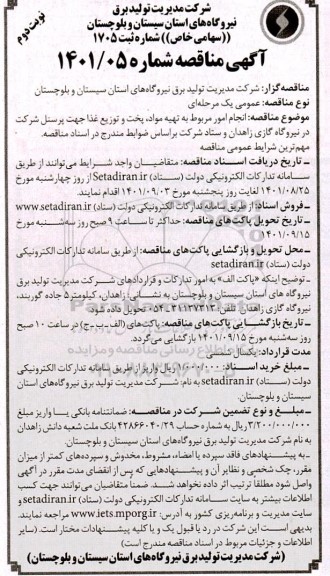 شرکت مدیریت تولید برق
نیروگاه‌های استان سیستان و بلوچستان
((سهامی خاص)) شماره ثبت ۱۷۰۵
نوبت دوم
آگهی مناقصه شماره ۱۴۰۱/۰۵
مناقصه‌گزار: شرکت مدیریت تولید برق نیروگاه‌های استان سیستان و بلوچستان
نوع مناقصه: عمومی یک مرحله‌ای
موضوع مناقصه: انجام امور مربوط به تهیه مواد، پخت و توزیع غذا جهت پرسنل شرکت
در نیروگاه گازی زاهدان و ستاد شرکت براساس ضوابط مندرج در اسناد مناقصه.
مهم‌ترین شرایط عمومی مناقصه
ـ تاریخ دریافت اسناد مناقصه: متقاضیان واجد شرایط می‌توانند از طریق
سامانه تدارکات الکترونیکی دولت (ستاد) Setadiran.ir از روز چهارشنبه مورخ
۱۴۰۱/۰۸/۲۵ لغایت روز پنجشنبه مورخ ۱۴۰۱/۰۹/۰۳ اقدام نمایند.
ـ فروش اسناد: از طریق سامانه تدارکات الکترونیکی دولت (ستاد) www.setadiran.ir
ـ تاریخ تحویل پاکت‌های مناقصه: حداکثر تا ساعت ۹ صبح روز سه‌شنبه مورخ
۱۴۰۱/۰۹/۱۵
ـ محل تحویل و بازگشایی پاکت‌های مناقصه: از طریق سامانه تدارکات الکترونیکی
دولت (ستاد) setadiran.ir
ـ توضیح اینکه «پاکت الف» به امور تدارکات و قراردادهای شرکت مدیریت تولید برق
نیروگاه های استان سیستان و بلوچستان به نشانی زاهدان، کیلومتر ۵ جاده گوربند،
نیروگاه گازی زاهدان. تلفن: ۳۱۱۳۷۳۱۳-۰۵۴ تحویل داده شود
ـ تاریخ بازگشایی پاکت‌های مناقصه: پاکت‌های (الف-ب-ج) در ساعت ۱۰ صبح
روز سه‌شنبه مورخ ۱۴۰۱/۰۹/۱۵ بازگشایی می‌گردد.
مدت قرارداد: یکسال شمسی
ـ مبلغ خرید اسناد: ۱/۰۰۰/۰۰۰ ریال واریز از طریق سامانه تدارکات الکترونیکی
دولت (ستاد) setadiran.ir به نام: شرکت مدیریت تولید برق نیروگاه‌های استان
سیستان و بلوچستان.
ـ مبلغ و نوع تضمین شرکت در مناقصه: ضمانتنامه بانکی یا واریز مبلغ
۲/۲۰۰/۰۰۰/۰۰۰ ریال به شماره حساب ۴۲۸۶۶۰۴۰/۲۹ بانک ملت شعبه دانش زاهدان
به نام شرکت مدیریت تولید برق نیروگاه‌های استان سیستان و بلوچستان.
ـ به پیشنهادهای فاقد سپرده یا امضاء، مشروط، مخدوش و سپرده‌های کمتر از میزان
مقرر، چک شخصی و نظایر آن و پیشنهادهایی که پس از انقضای مدت مقرر در آگهی
واصل شود مطلقا ترتیب اثر داده نخواهد شد. ضمنا متقاضیان می‌توانند جهت کسب
اطلاعات بیشتر به سایت سامانه تدارکات الکترونیکی دولت (ستاد) setadiran.ir و
سایت مدیریت و برنامه‌ریزی کشور به آدرس: www.iets.mporg.ir مراجعه نمایند.
بدیهی است این شرکت در رد یا قبول یک و یا کلیه پیشنهادات مختار است. (سایر
اطلاعات و جزئیات مربوط در اسناد مناقصه مندرج است)
(شرکت مدیریت تولید برق نیروگاه‌های استان سیستان و بلوچستان)